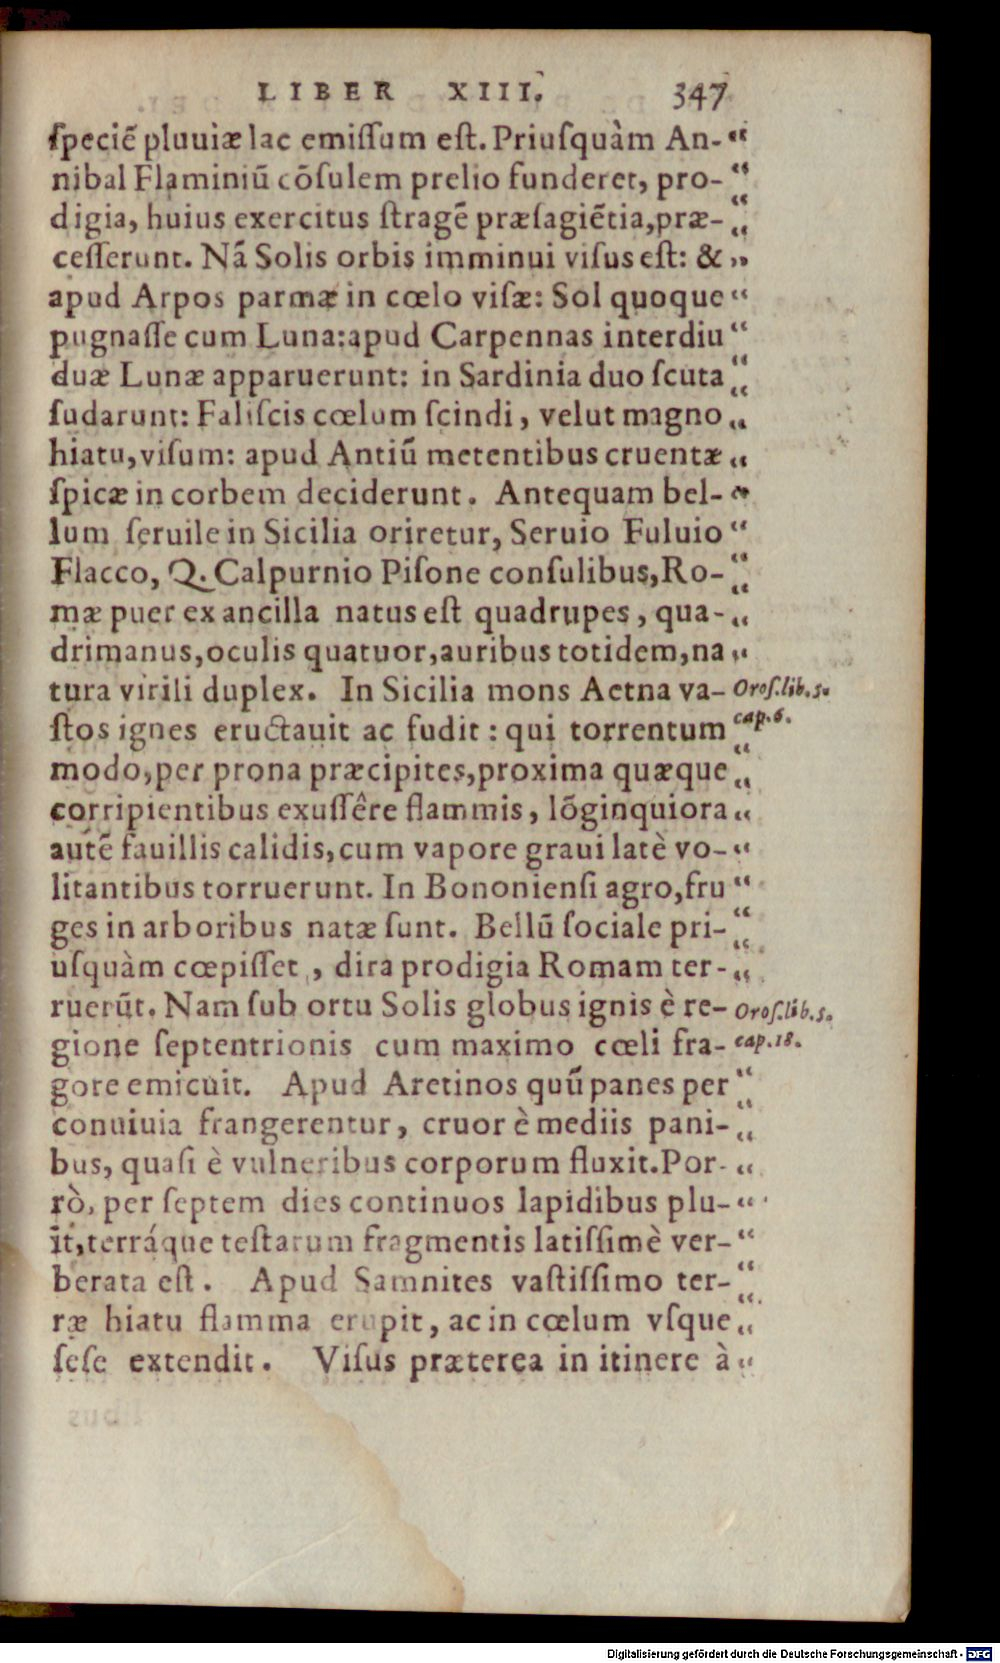 LIBER XIII. 347
ſpeciē pluuiæ lac emiſſum eſt. Priuſquàm An- “
nibal Flaminiū cōſulem prelio funderet, pro- “
digia, huius exercitus ſtragē præſagiētia, præ- “
ceſſerunt. Nā Solis orbis imminui viſus eſt: & “
apud Arpos parmæ in cœlo viſæ: Sol quoque “
pugnaſſe cum Luna: apud Carpennas interdiu “
duæ Lunæ apparuerunt: in Sardinia duo ſcuta “
ſudarunt: Faliſcis cœlum ſcindi, velut magno “
hiatu, viſum: apud Antiū metentibus cruentæ “
ſpicæ in corbem deciderunt. Antequam bel- “
lum ſeruile in Sicilia oriretur, Seruio Fuluio “
Flacco, Q. Calpurnio Piſone conſulibus, Ro- “
mæ puer ex ancilla natus eſt quadrupes, qua- “
drimanus, oculis quatuor, auribus totidem, na “
tura virili duplex. In Sicilia mons Aetna va- Oroſ. lib. 5.
ſtos ignes eructauit ac fudit: qui torrentum cap. 6.
modo, per prona præcipites, proxima quæque “
corripientibus exuſſêre flammis, lōginquiora “
autē fauillis calidis, cum vapore graui latè vo- “
litantibus torruerunt. In Bononienſi agro, fru “
ges in arboribus natæ ſunt. Bellū ſociale pri- “
uſquàm cœpiſſet, dira prodigia Romam ter- “
ruerūt. Nam ſub ortu Solis globus ignis è re- Oroſ. lib. 5.
gione ſeptentrionis cum maximo cœli fra- cap. 18.
gore emicuit. Apud Aretinos quū panes per “
conuiuia frangerentur, cruor è mediis pani- “
bus, quaſi è vulneribus corporum fluxit. Por- “
rò, per ſeptem dies continuos lapidibus plu- “
it, terráque teſtarum fragmentis latiſſimè ver- “
berata eſt. Apud Samnites vaſtiſſimo ter- “
ræ hiatu flamma erupit, ac in cœlum vſque “
ſeſe extendit. Viſus præterea in itinere à “
Digitalisierung gefördert durch die Deutsche Forschungsgemeinschaft - DFG